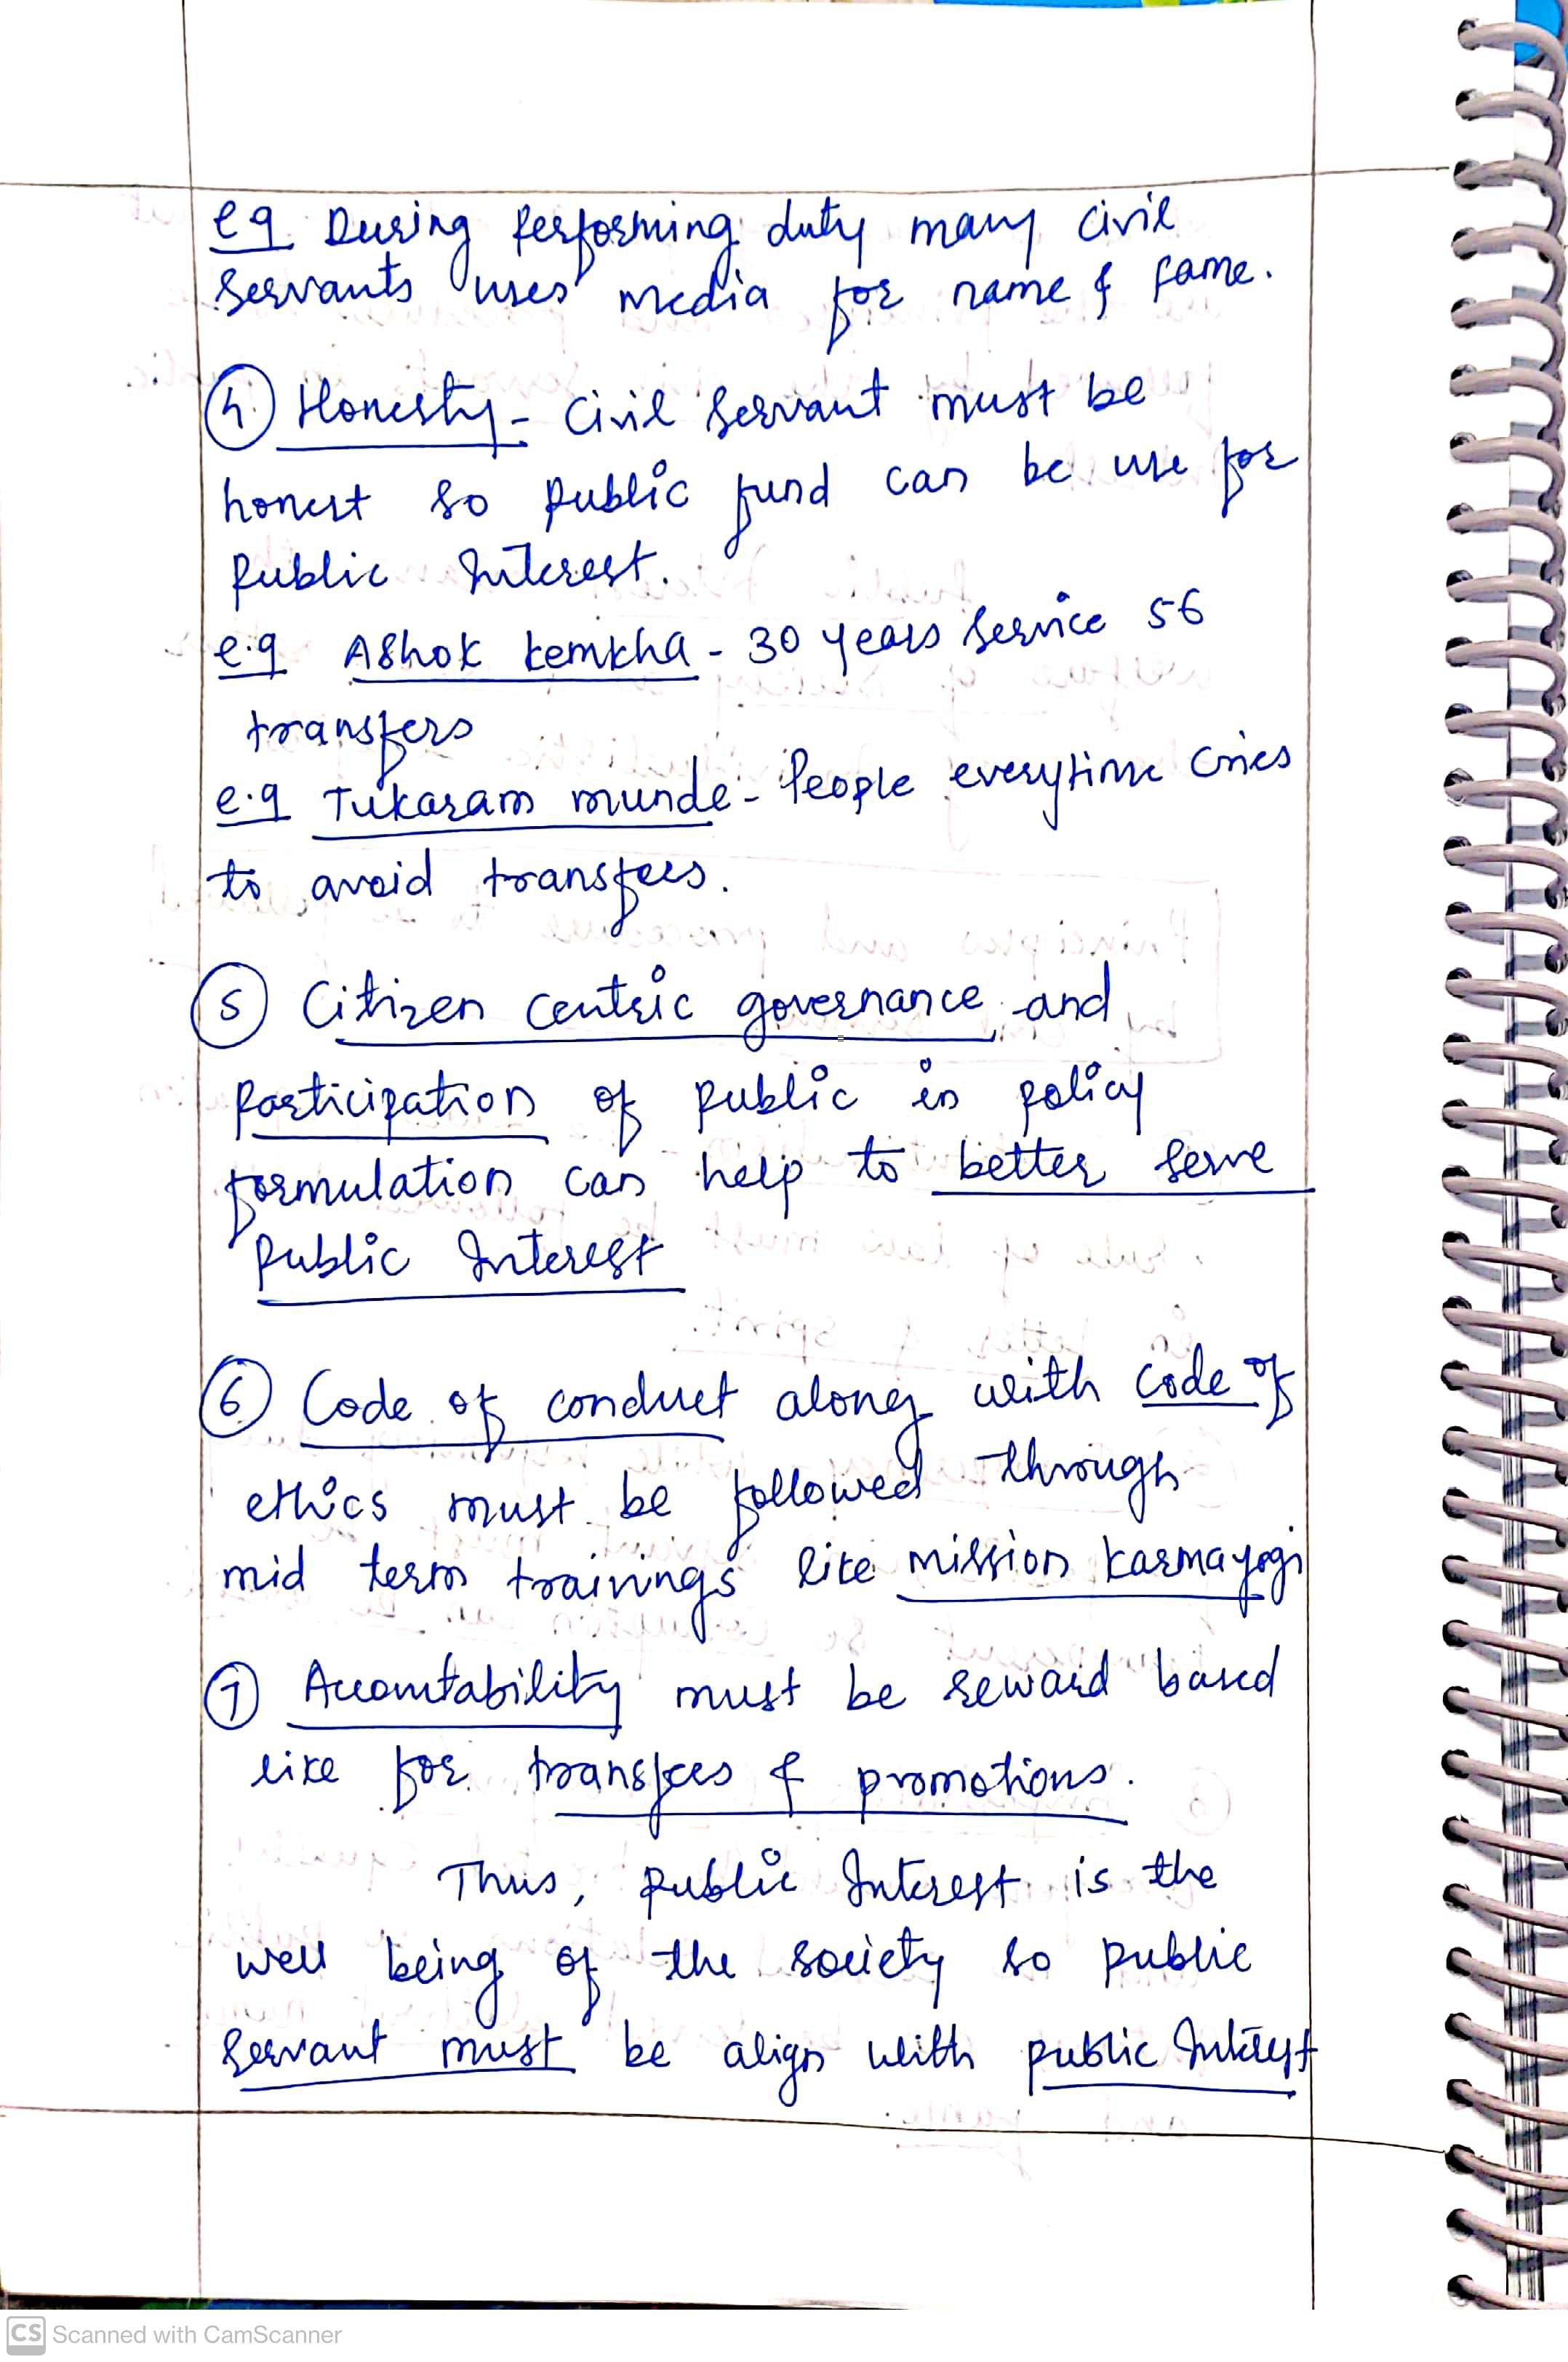 e.g During performing duty many civil
servants uses media for name & fame.
4 Honesty - Civil servant must be
honest so public fund can be use for
public Interest.
e.g Ashok kemkha - 30 years service 56
transfers
e.g Tukaram munde - People everytime cries
to avoid transfers.
5 Citizen centric governance and
participation of public in policy
formulation can help to better serve
public Interest
6 Code of conduct along with code of
ethics must be followed through
mid term trainings like mission karmayogi
7 Accountability must be reward based
like for transfers & promotions.
Thus, public Interest is the
well being of the society so public
servant must be align with public Interest
CS Scanned with CamScanner